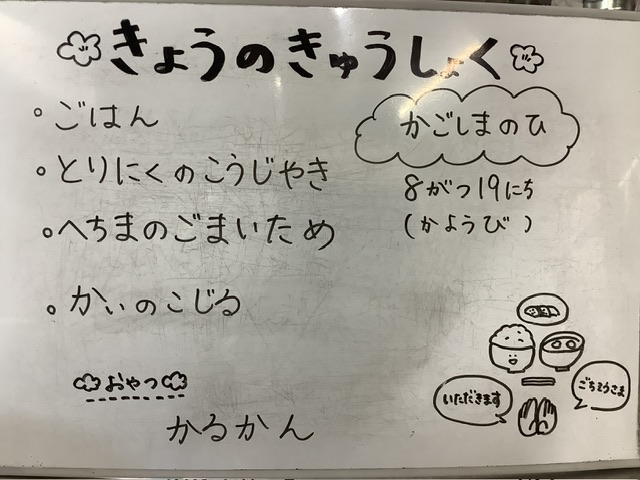 きょうのきゅうしょく
かごしまのひ
8がつ19にち
(かようび)
◦ごはん
◦とりにくのこうじやき
◦へちまのごまいため
◦かいのこじる
おやつ
かるかん
いただきます
ごちそうさま